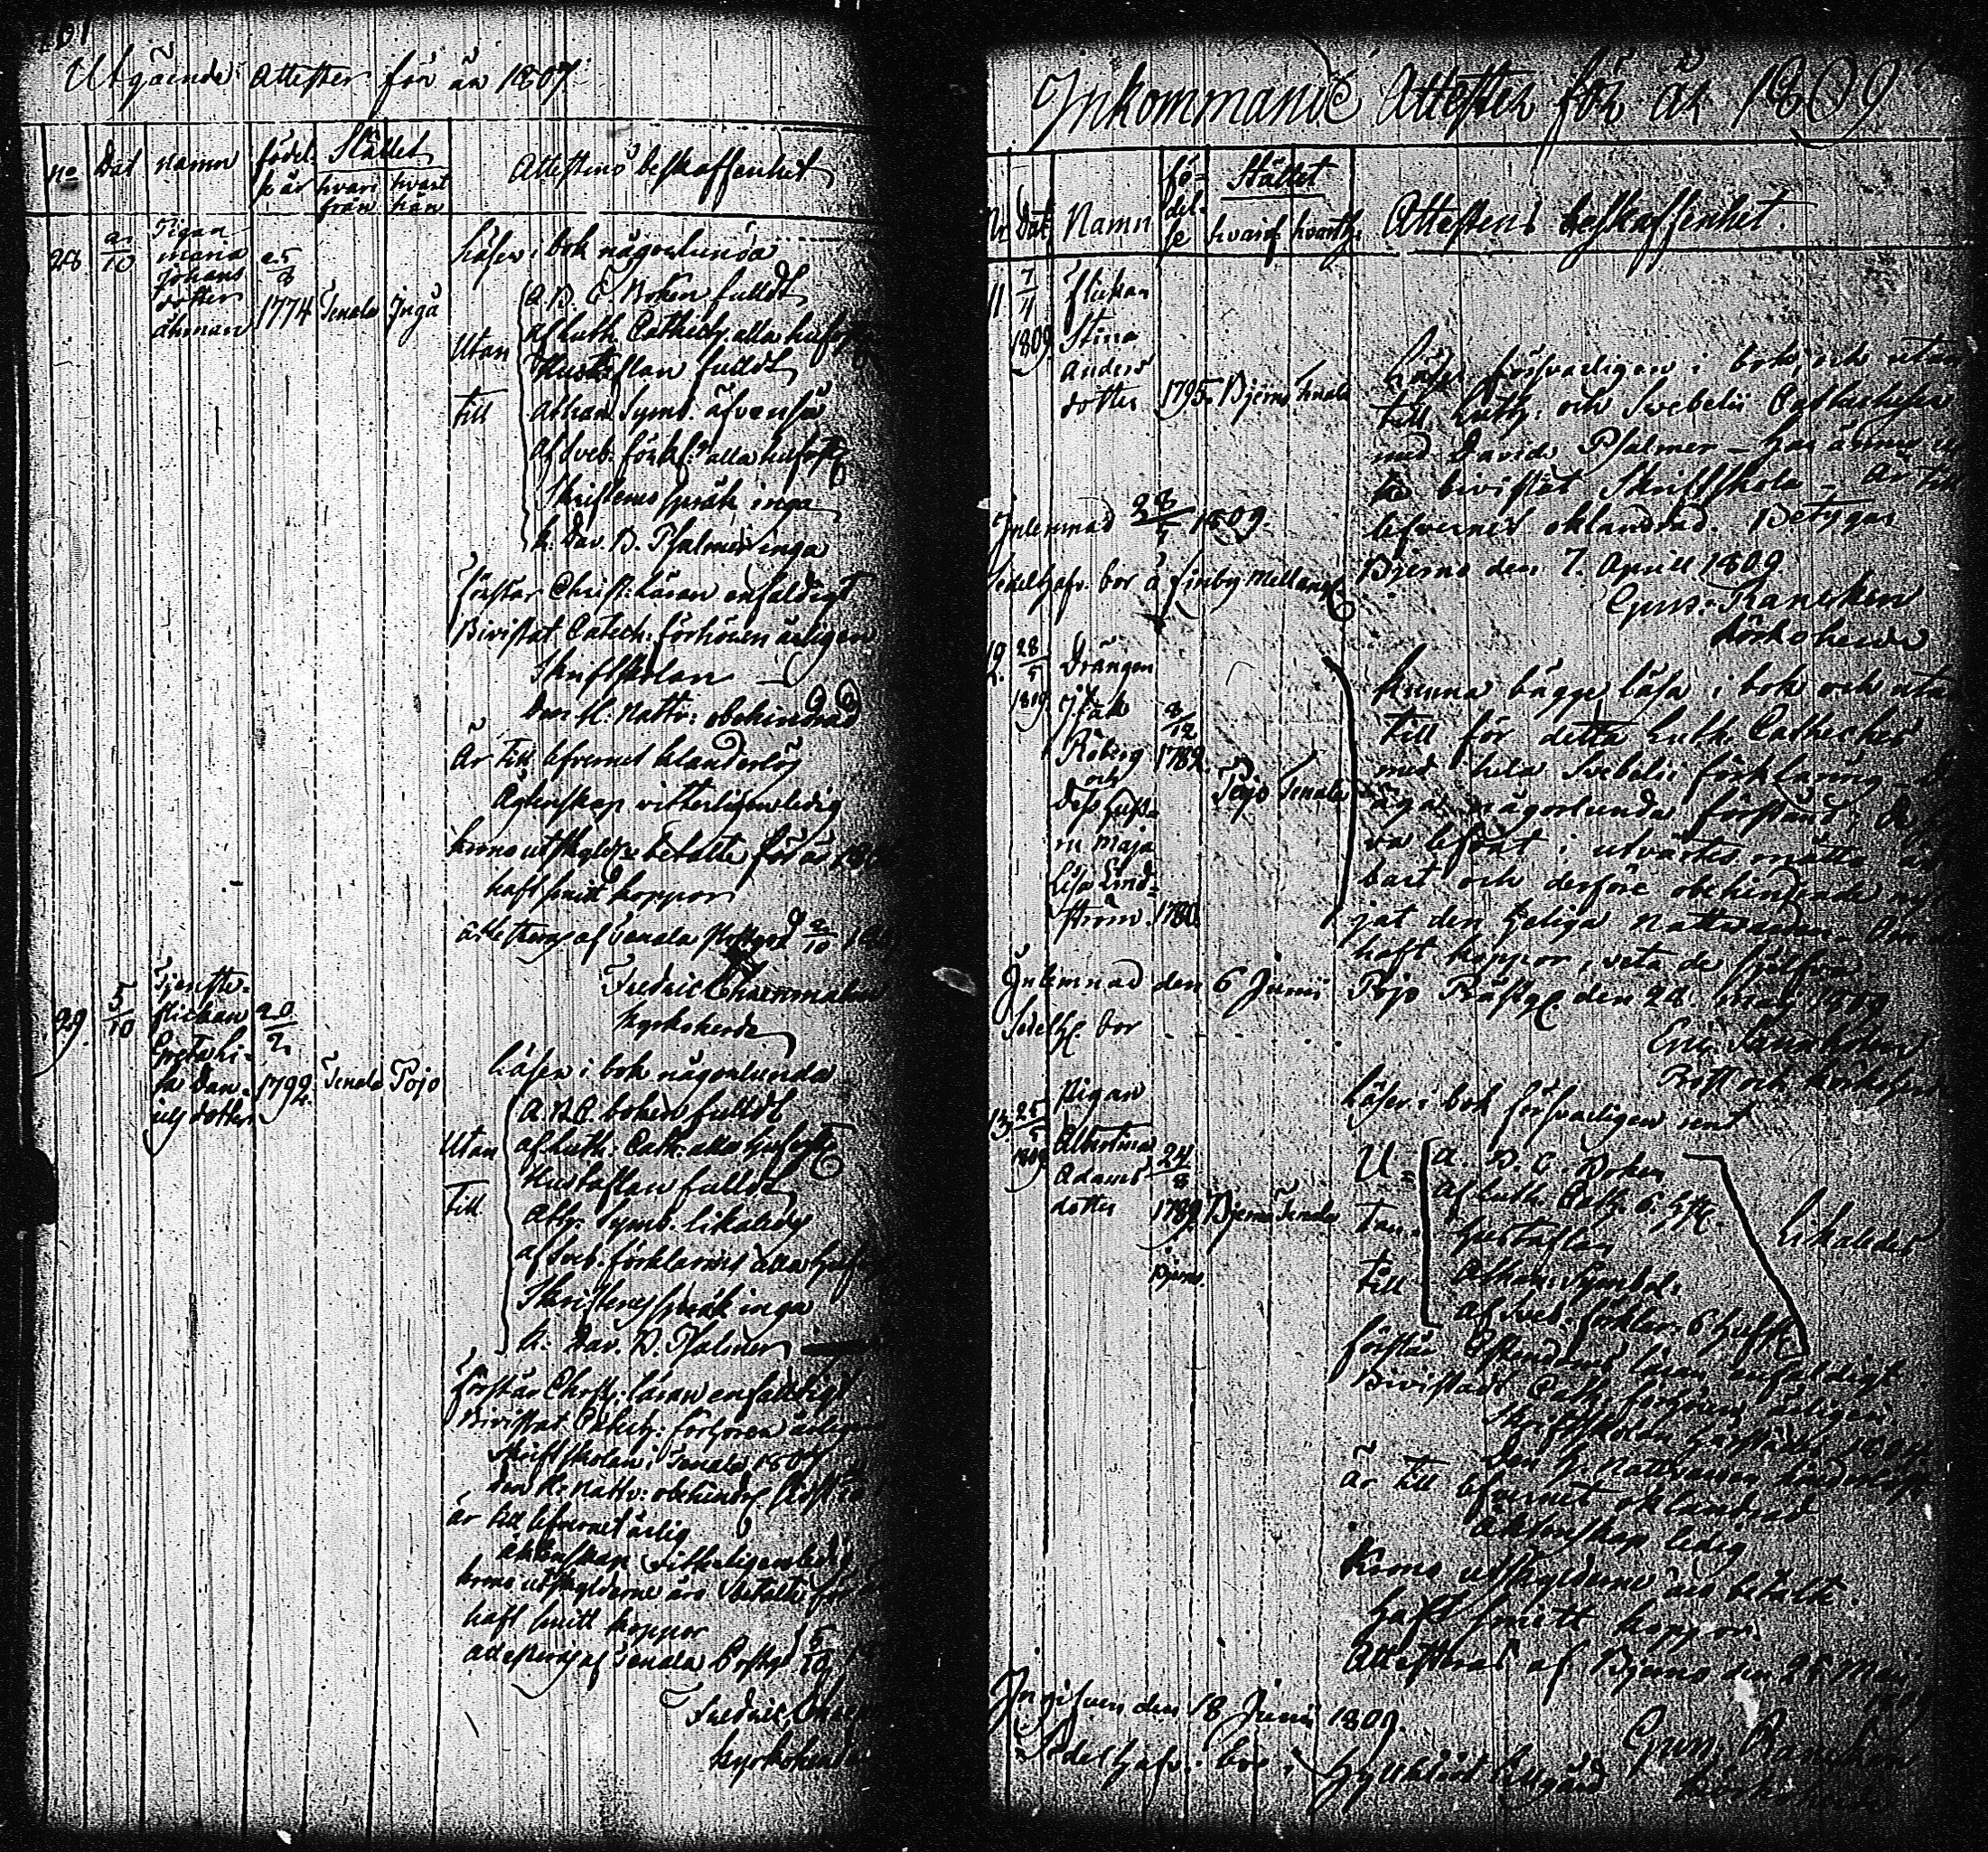 Utgående Attester för år 1807
no Dat namn födel: Stället Attestens beskaffenhet
se år hvari från hvart hän
28 2/10 Pigan
maria
Johans
dotter
åhman
25/8
1774 Tenala Ingå
Läser i bok någorlunda
Utan till
A.B.C. Boken fulldt
af Luth. Catheches alla hufst
Hustaflan fulldt
Athan. Symb. äfvenså
af Sveb. förkl: alla hufst
Skriftenes språk inga
k. Dav. B. Psalmer inga
förstår Christ: Läran enfaldigt
Bivistat Catech: förhören årligen
Skriftskolan
Den H: Nattv: obehindrad
Är till lefvernet klanderlös
Ägtenskap vitterligen ledig
krono utskylder betalte för år
haft smitt koppor
attesteras af Tenala Prestgd 2/10
Fredric Ehrenmalm
Kyrkoherde
29. 5/10 Tjenste-
flickan
Greta Li-
sa Dan-
iels dotter
20/2
1792 Tenala Pojo
Läser i bok någorlunda
Utan till
A B C. boken fulldt
af Luth. Cath. alla Hufst
Hustaflan fulldt
Ath. Symb. likaledes
af Sveb. förklaring alla Huf
Skriftenes språk inga
k. Dav. B. Psalmer
förstår Christ. läran enfaldigt
Bivistat Catech: förhören årligen
Skriftskolan i Tenala 1807
Den H. Nattv: obehindr.
är till lefvernet ärlig
äktenskap vitterligen ledig
krono utskylderne äro betalte för
haft smitt koppor
attesteras af Tenala Prestgd 5/10
Fredric
kyrkoherde
Inkommande Attester för år 1809
Nr Dat. Namn fö-
del-
se Stället
hvarif. hvarth. Attestens beskaffenhet.
11 7/4
1809 flickan
Stina
Anders
dotter 1795. Bjerno Tenala
Läser försvarligen i bok, och utan
till Luth: och Svebelii Cathecheser
med Davids Psalmer – har ännu
bivistat Skriftskola – Är till
lefvernet oklandrad. Betygas
Bjerno den 7. April 1809
Gust: Rancken
körkoherde
Inlemnad 28/5 1809.
Sedelhafv. bor å Finby Mellang.
12. 28/5
1809 Drängen
Isak
Röberg 8/12 1782.
och
Dess hust-
ru Maja
Lisa Lind-
ström. 1780.
Pojo Tenala
Kunna bägge läsa i bok och utan
till för detta Luth. Catheches
med hela Svebelii förklaring
äga någorlunda förstånd,
va lefvat i utvärtes måtto
bart och derföre obehindrade
jat den heliga Nattvarden. Om
haft koppor, veta de sjelfva
Pojo Prästg. den 28. May 1809
Inlemnad den 6 Junii
Sedelh. bor
Prost och körkoherde
13. 25/5
1809 Pigan
Albertina
Adams
dotter 24/8
1789 Bjerno Tenala
Bjerno.
Läser i bok försvarligen samt
U-
tan
till
A. B. C. Boken
af Luth. Cath. 6. H.
Hustaflan
Athan: Symbol:
af Sveb. förklar. 6 Hufst.
Likaledes
förstår Christendoms läran enfaldigt
Bivistadt Cath. förhören årligen
Skriftskolan
Den H. Nattvarden hinderlöst
Är till lefvernet oklandrad
äktenskap ledig
Krono utskylderne äro betalte.
Haft smitt koppor.
Attesteras af Bjerno den 25 Maj
1809
Gust: Rancken
körkoherde
Ingifven den 18 Junii 1809.
Sedelhafv: bor i